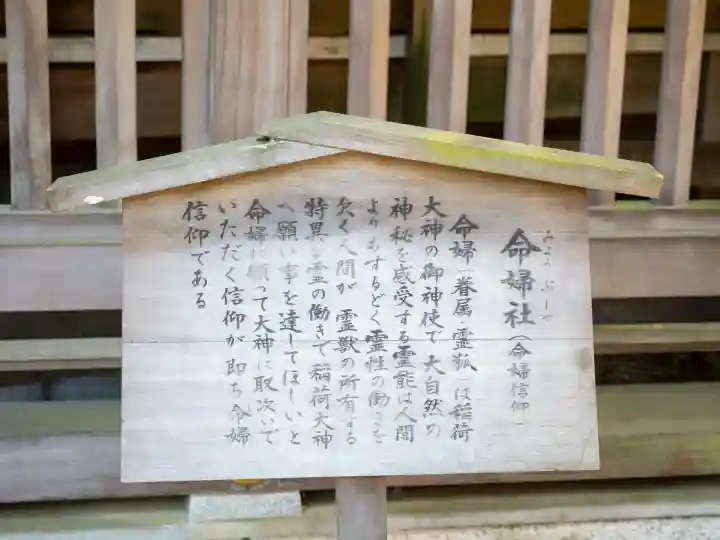 みょうぶしゃ
命婦社（命婦信仰）
命婦（眷属・霊狐）は稲荷
大神の御神使で大自然の
神秘を感受する霊能は人間
よりもするどく霊性の働きを
欠く人間が霊獣の所有する
特異な霊の働きで稲荷大神
へ願い事を達してほしいと
命婦に願って大神に取次いで
いただく信仰が即ち命婦
信仰である